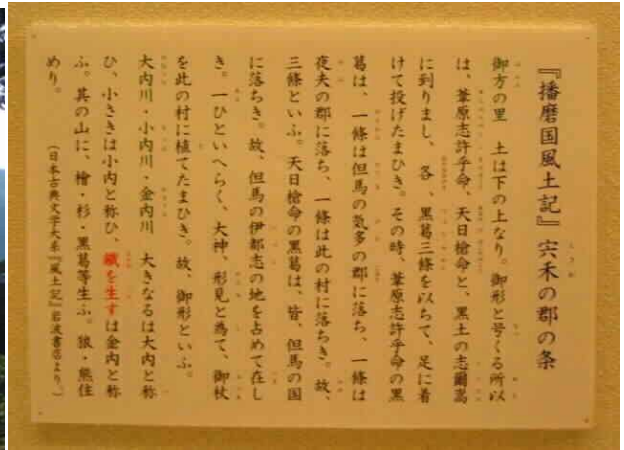 『播磨国風土記』宍禾の郡の条
御方の里　土は下の上なり。御形と号くる所以
は、葦原志許乎命、天日槍命と、黒土の志爾嵩
に到りまし、各、黒葛三條を以ちて、足に着
けて投げたまひき。その時、葦原志許乎命の黒
葛は、一條は但馬の気多の郡に落ち、一條は
夜夫の郡に落ち、一條は此の村に落ちき。故、
三條といふ。天日槍命の黒葛は、皆、但馬の国
に落ちき。故、但馬の伊都志の地を占めて在し
き。一ひといへらく、大神、形見と為て、御杖
を此の村に植てたまひき。故、御形といふ。
大内川・小内川・金内川　大きなるは大内と称
ひ、小さきは小内と称ひ、鐵を生すは金内と称
ふ。其の山に、檜・杉・黒葛等生ふ。狼・熊住
めり。
（日本古典文学大系『風土記』岩波書店より。）